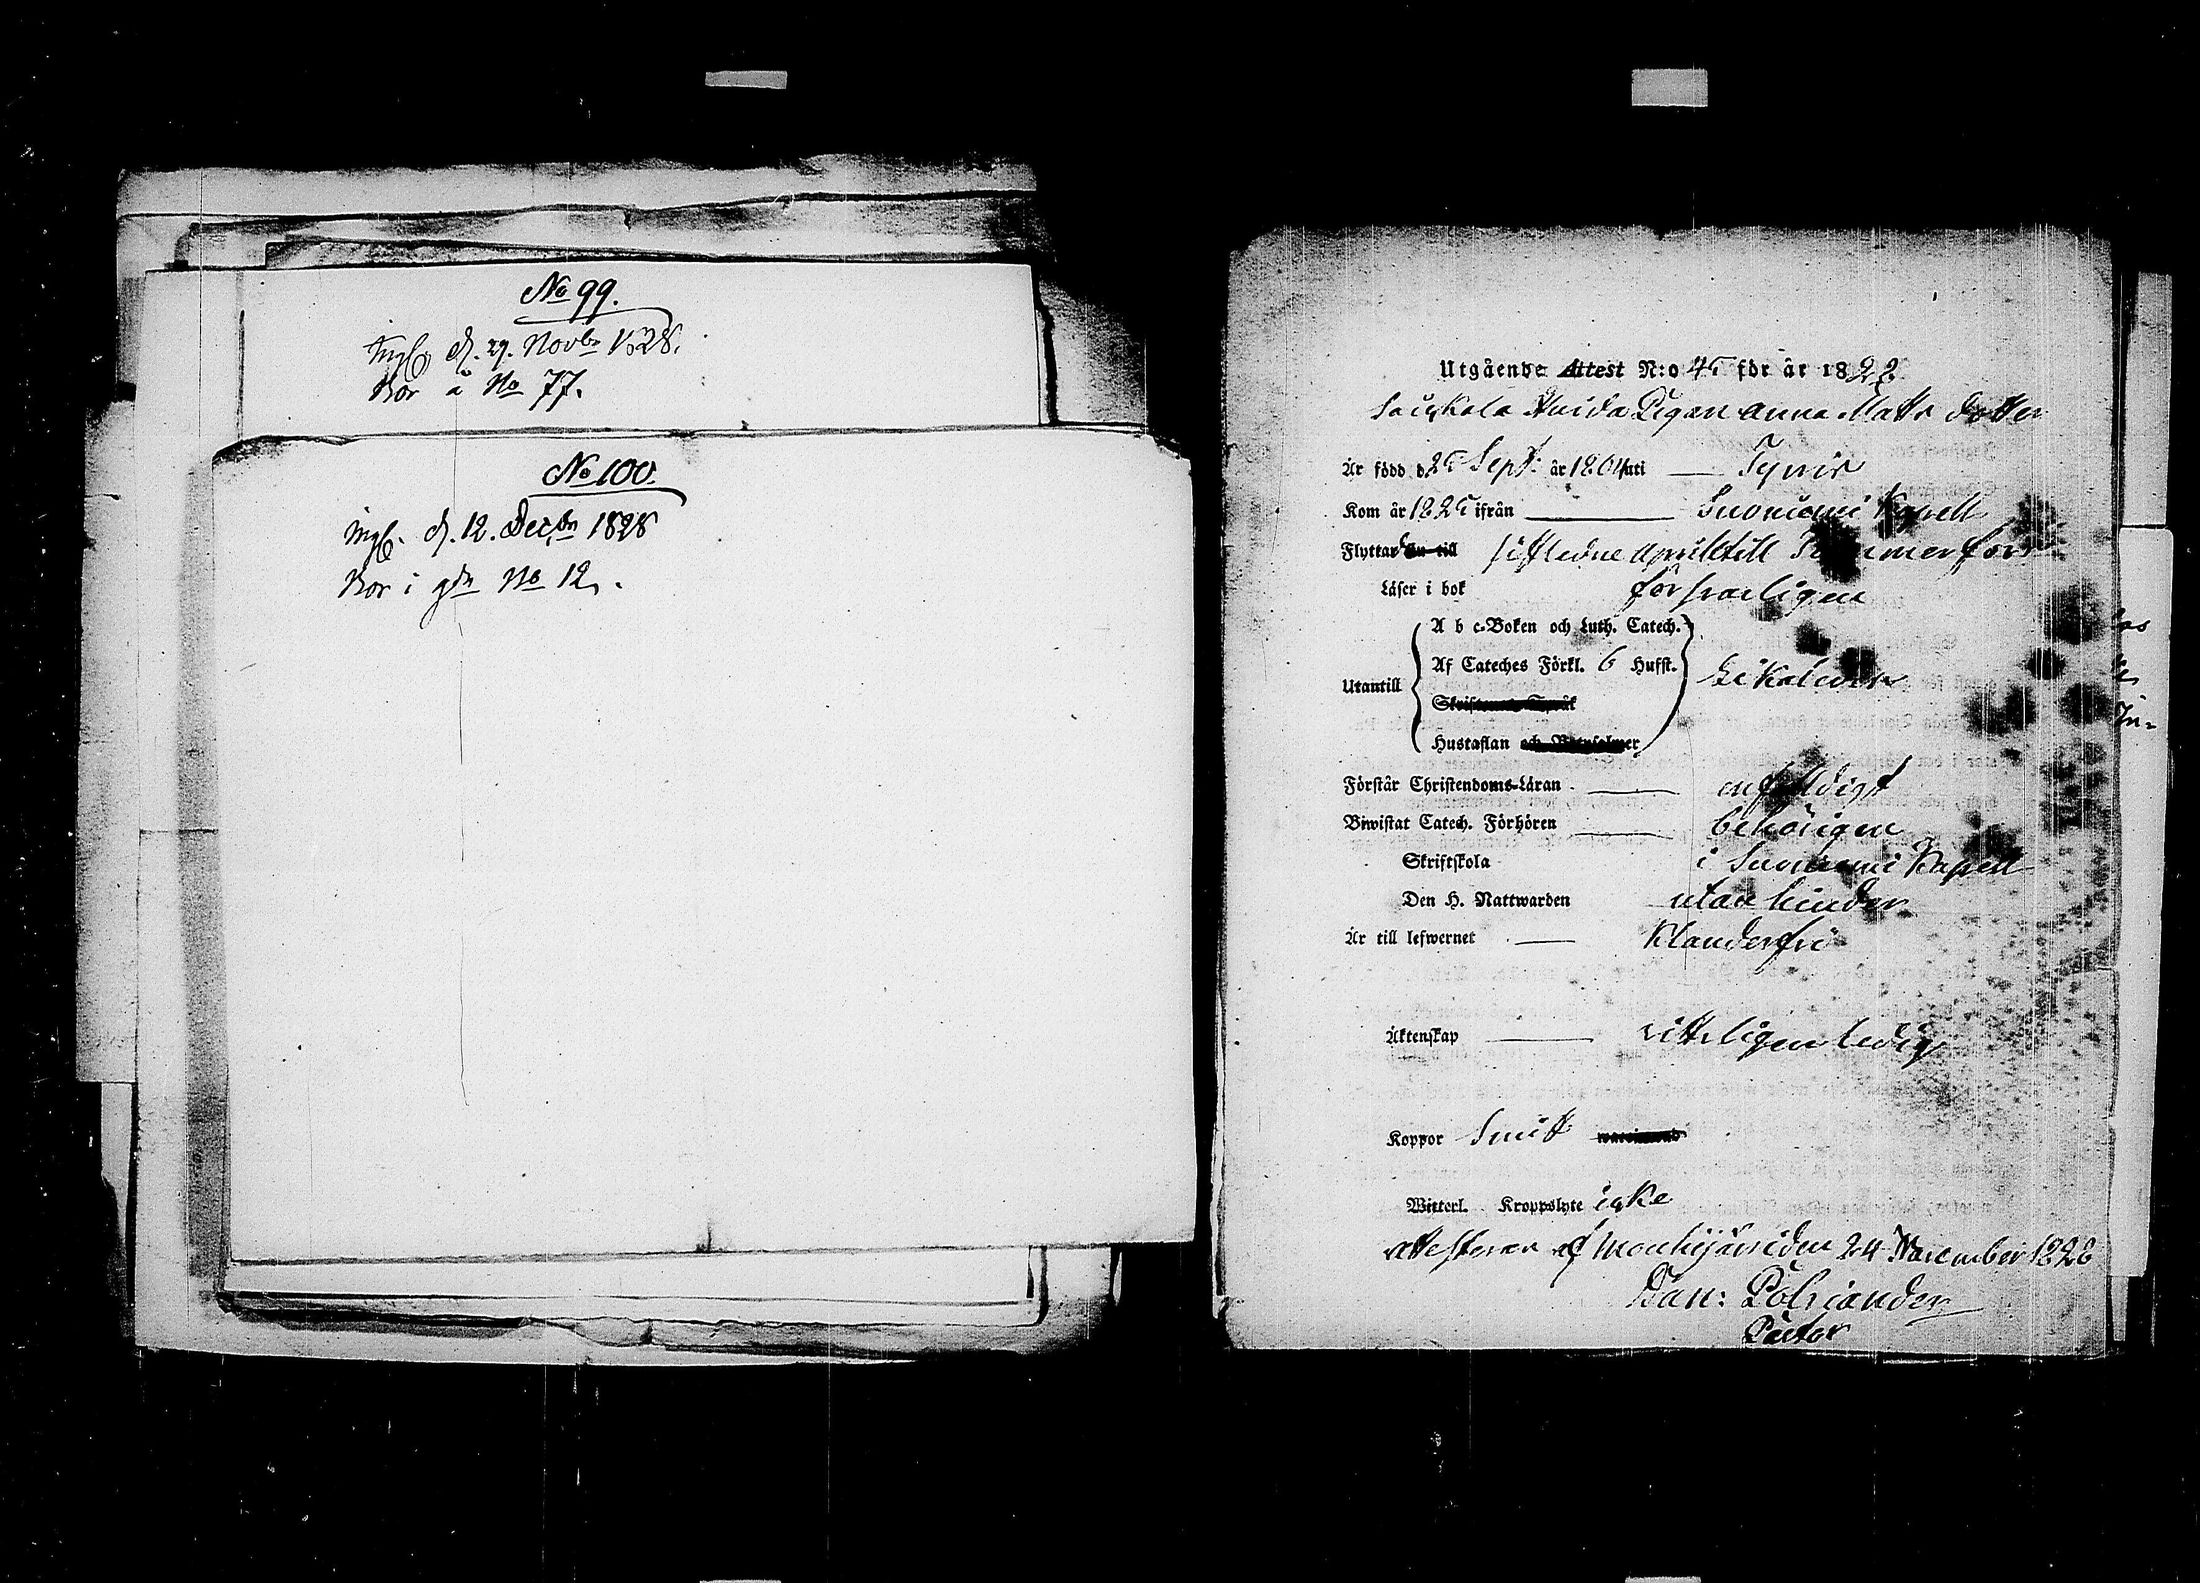 No 99.
Ingb. d. 29. Novbr 1828.
Bor å No 77.
No 100.
Ingb. d. 12. Decbr 1828
Bor i gdn No 12.
Utgående Attest N:o 45 för år 1828
Pigan Anna Matts dotter
Är född d 25 Sept. år 1804 uti Tyrvis
Kom år 1825 ifrån Suoniemi Kapell
Flyttade sistledne April till Tammerfors
Läser i bok försvarligen
A b c-Boken och Luth. Catech.
Af Cateches Förkl. 6 Hufst.
Utantill likaledes
Hustaflan
Förstår Christendoms-Läran enfaldigt
Biwistat Catech. Förhören behörigen
Skriftskola i Suoniemi Kapell
Den H. Nattwarden utan hinder
Är till lefwernet klanderfri
Äktenskap vitterligen ledig
Koppor
Witterl. Kroppslyte icke
attesterar af Mouhijärvi den 24 November 1828
Dan: Polviander
Pastor